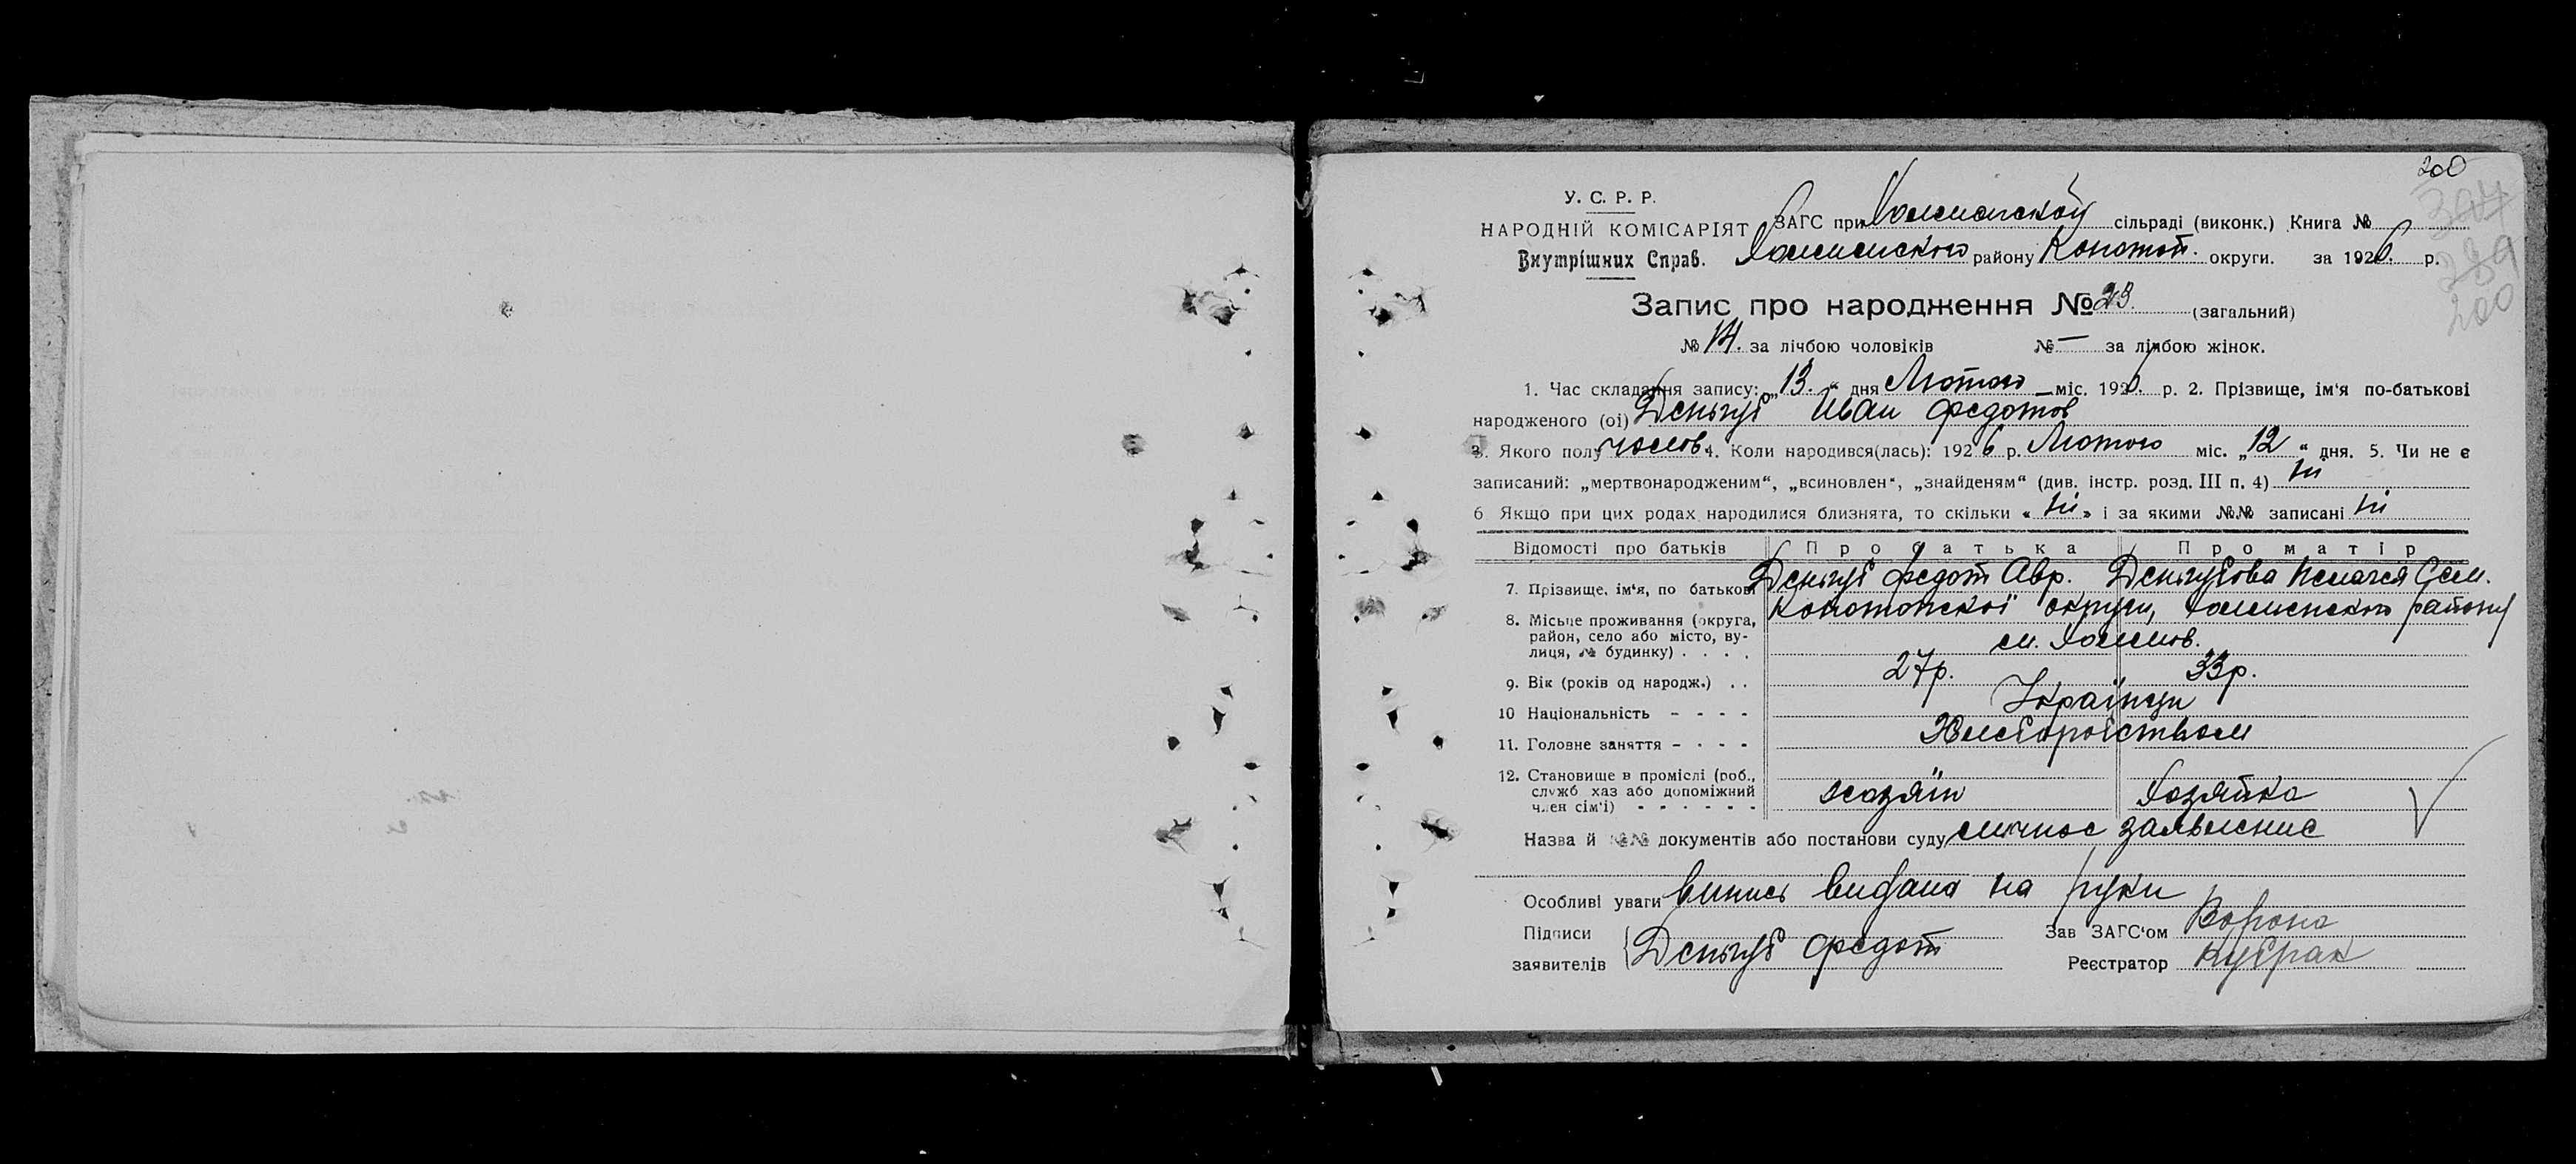 200
304
289
200
У. С. Р. Р.
НАРОДНІЙ КОМІСАРІЯТ
Внутрішних Справ.
ЗАГС при сільраді (виконк.) Книга №
району Конотоп. округи. за 1926 р.
Запис про народження № 23. (загальний)
№ 14. за лічбою чоловіків № — за лічбою жінок.
1. Час складання запису: „13.“ дня Лютого міс. 1926. р. 2. Прізвище, ім‘я по-батькові
народженого (ої) Деньгуб Иван Федотов
3. Якого полу чолов. 4. Коли народився(лась): 1926 р. Лютого міс. „12“ дня. 5. Чи не є
записаний: „мертвонародженим“, „всиновлен“, „знайденям“ (див. інстр. розд. III п. 4) ні
6 Якщо при цих родах народилися близнята, то скільки «ні» і за якими №№ записані ні
Відомості про батьків Про батька Про матір
7. Прізвище, ім‘я, по батькові Деньгуб Федот Авр. Деньгубова Пелагея Сем.
8. Місьце проживання (округа, район, село або місто, вулиця, № будинку) . . . . Конотопскої округи, району
9. Вік (років од народж.) . . 27р. 33р.
10 Національність - - - - Українци
11. Головне заняття - - - - Хлеборобством
12. Становище в промислі (роб., служб хаз або допоміжний член сім‘ї) - - - - - - хазяїн Хозяйка
Назва й №№ документів або постанови суду личное заявление
Особливі уваги випись видана на руки
Підписи заявителів Деньгуб Федот
Зав ЗАГС‘ом Ворона
Реєстратор Кубрак